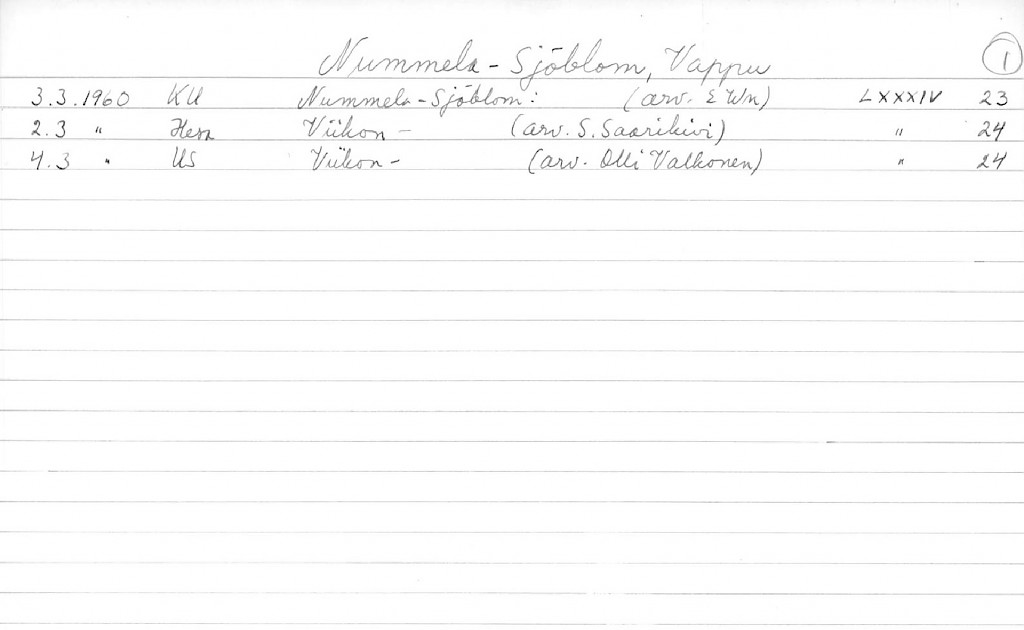 Nummela-Sjöblom, Vappu 1
3.3.1960 KU Nummela-Sjöblom: (arv. E Wn) LXXXIV 23
2.3 " Hesa Viikon - (arv. S. Saarikivi) " 24
4.3 " US Viikon - (arv. Olli Valkonen) " 24